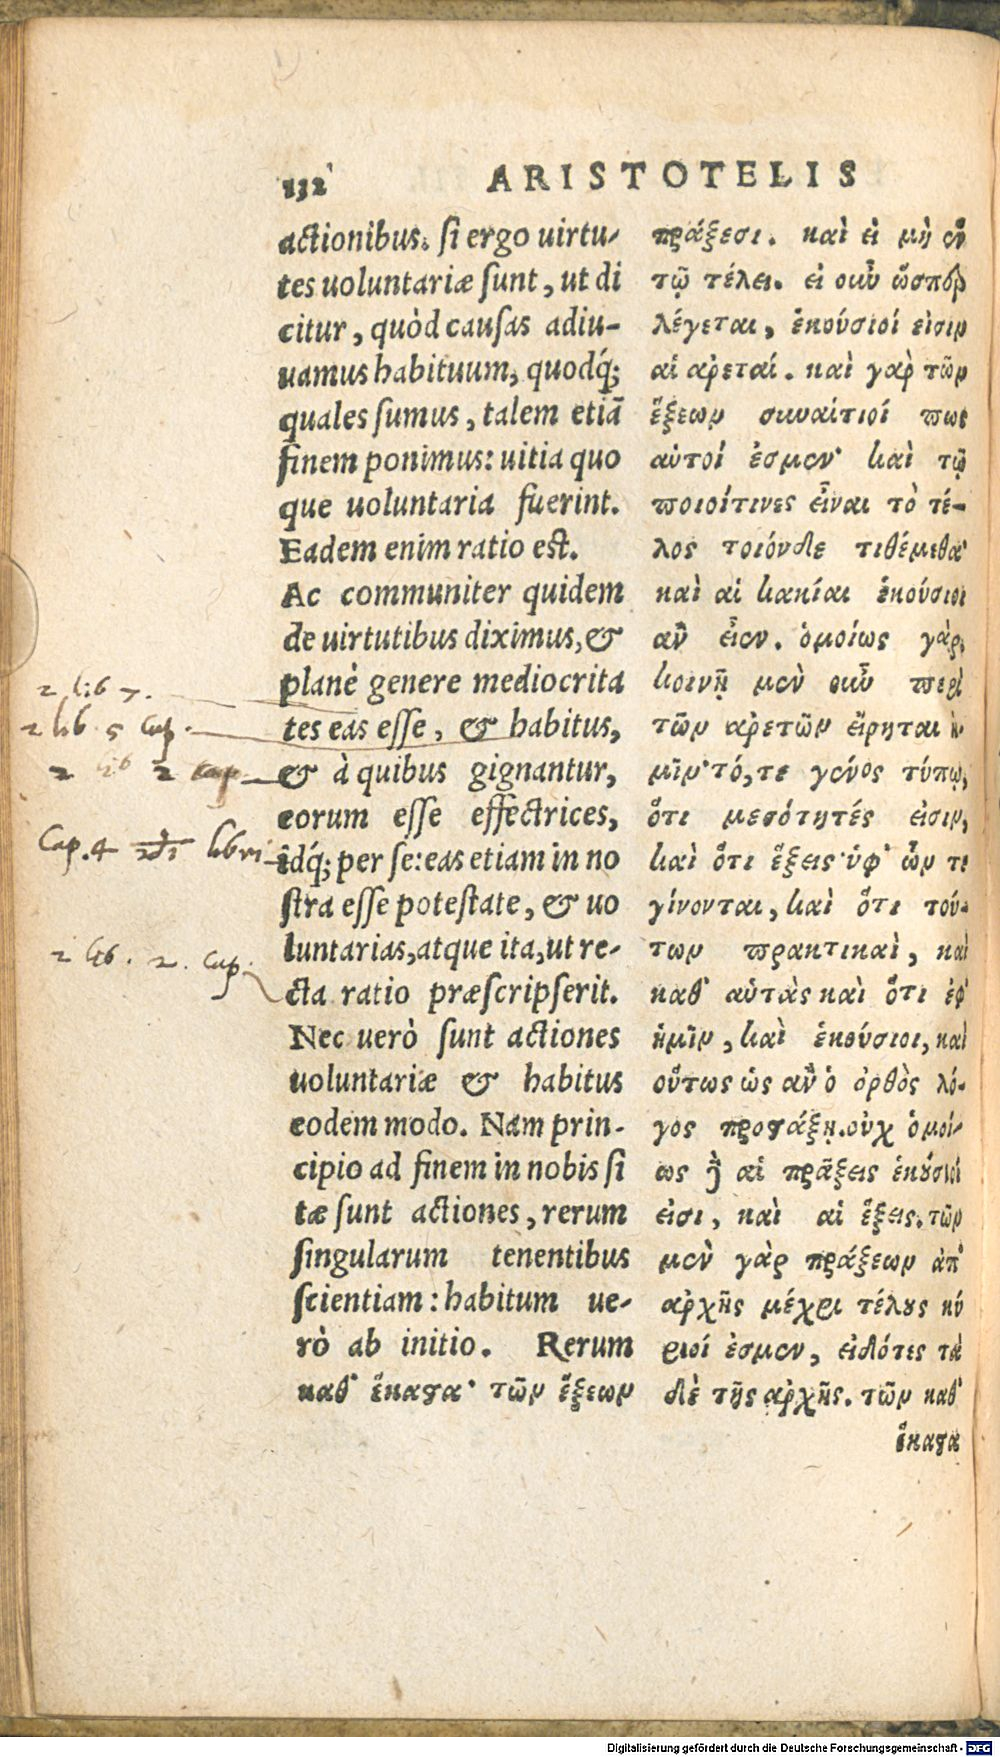 132 ARISTOTELIS
actionibus. si ergo uirtu-
tes uoluntariæ sunt, ut di
citur, quòd causas adiu-
uamus habituum, quodq́;
quales sumus, talem etiā
finem ponimus: uitia quo
que uoluntaria fuerint.
Eadem enim ratio est.
Ac communiter quidem
de uirtutibus diximus, &
planè genere mediocrita
tes eas esse, & habitus,
& à quibus gignantur,
eorum esse effectrices,
idq́; per se: eas etiam in no
stra esse potestate, & uo
luntarias, atque ita, ut re-
cta ratio præscripserit.
Nec uerò sunt actiones
uoluntariæ & habitus
eodem modo. Nam prin-
cipio ad finem in nobis si
tæ sunt actiones, rerum
singularum tenentibus
scientiam: habitum ue-
rò ab initio. Rerum
καθ' ἕκαστα· τῶν ἕξεων
πράξεσι. καὶ εἰ μὴ ἐν
τῷ τέλει. εἰ οὖν ὥσπερ
λέγεται, ἑκούσιοί εἰσιν
αἱ ἀρεταί. καὶ γὰρ τῶν
ἕξεων συναίτιοί πως
αὐτοί ἐσμεν· καὶ τῷ
ποιοίτινες εἶναι τὸ τέ-
λος τοιόνδε τιθέμεθα·
καὶ αἱ κακίαι ἑκούσιοι
ἂν εἶεν. ὁμοίως γὰρ.
κοινῇ μὲν οὖν περὶ
τῶν ἀρετῶν εἴρηται ἡ-
μῖν· τό, τε γένος τύπῳ,
ὅτι μεσότητές εἰσιν,
καὶ ὅτι ἕξεις· ὑφ' ὧν τε
γίνονται, καὶ ὅτι τού-
των πρακτικαὶ, καὶ
καθ' αὑτὰς καὶ ὅτι ἐφ'
ἡμῖν, καὶ ἑκούσιοι, καὶ
οὕτως ὡς ἂν ὁ ὀρθὸς λό-
γος προστάξῃ. οὐχ ὁμοί-
ως δὲ αἱ πράξεις ἑκούσιοί
εἰσι, καὶ αἱ ἕξεις. τῶν
μὲν γὰρ πράξεων ἀπ'
ἀρχῆς μέχρι τέλους κύ
ριοί ἐσμεν, εἰδότες τὰ
δὲ τῆς ἀρχῆς. τῶν καθ'
ἕκαστα
2 lib 7.
2 lib. 5 Cap.
2 lib 2 Cap
Cap. 4 libri
2 lib. 2. Cap.
Digitalisierung gefördert durch die Deutsche Forschungsgemeinschaft - DFG